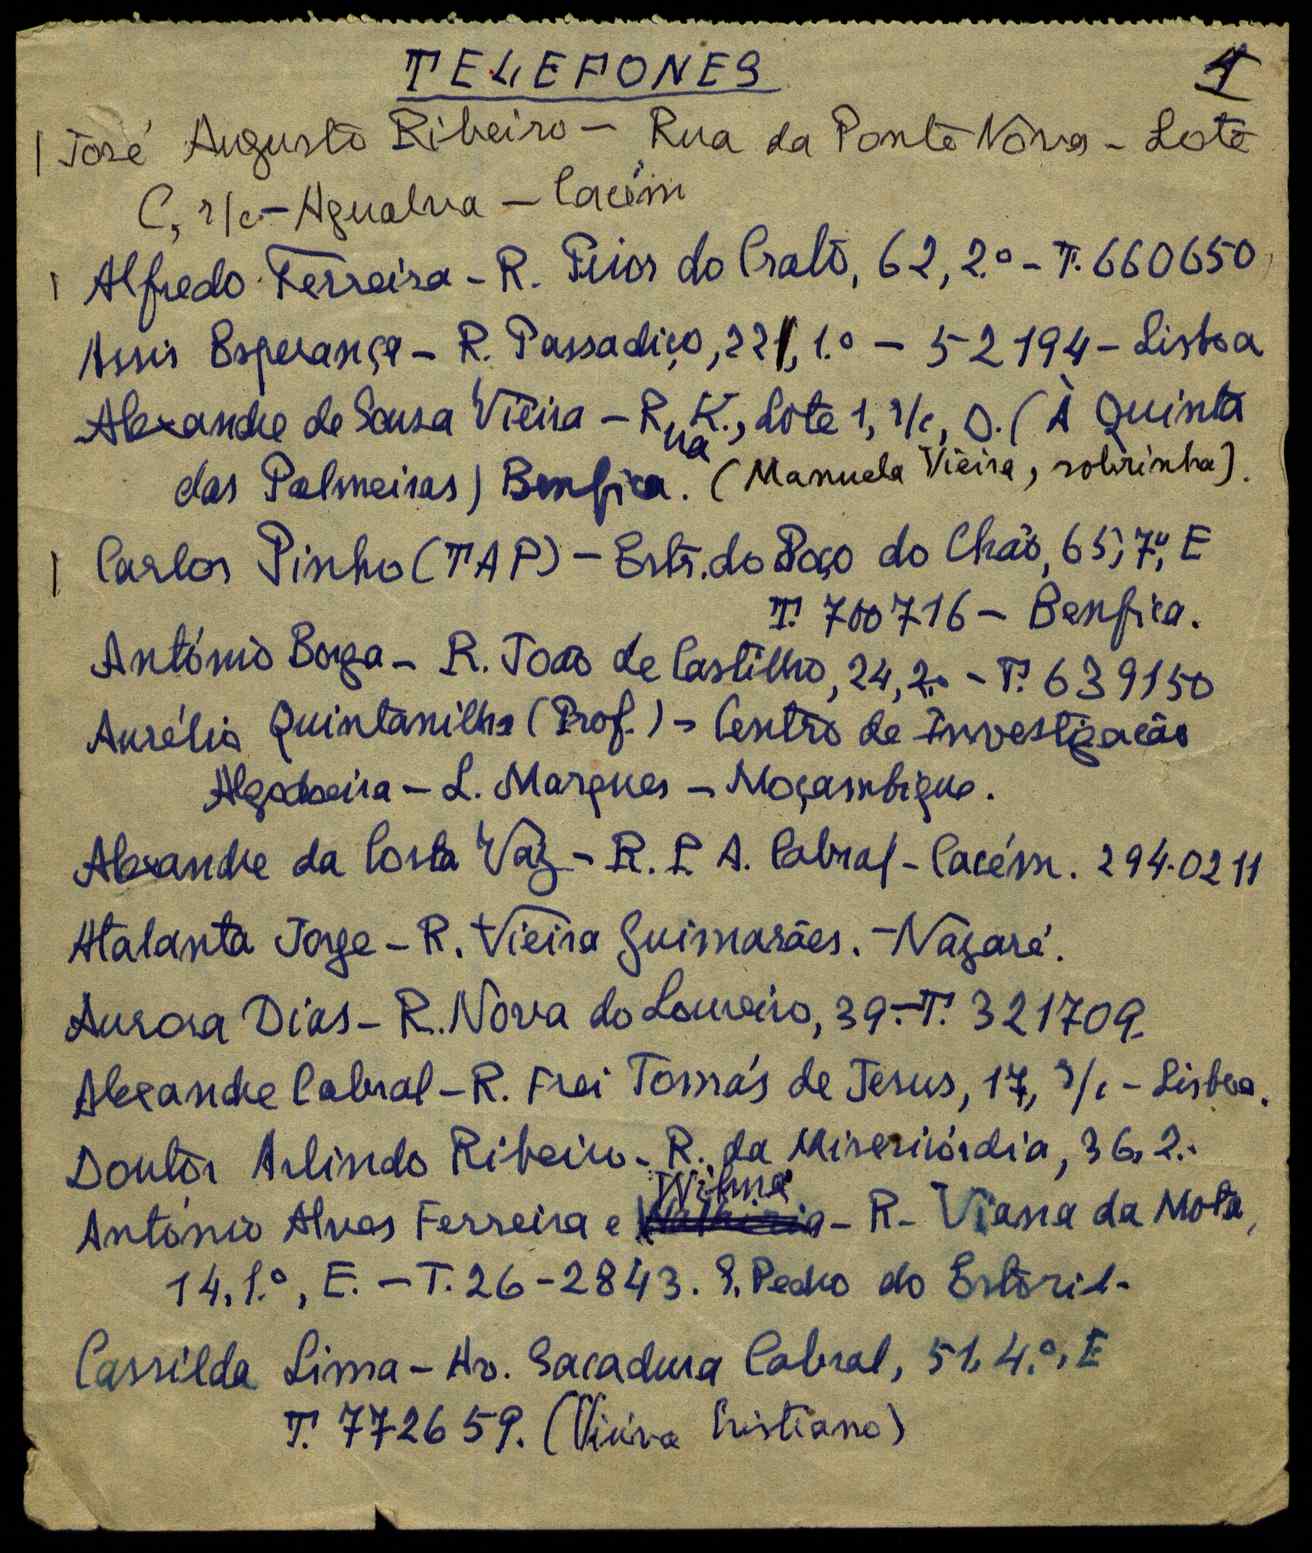 TELEFONES
1
José Augusto Ribeiro - Rua da Ponte Nova - Lote
C, r/c - Agualva - Cacém
Alfredo Ferreira - R. Prior do Crato, 62, 2.º - T. 660650
Assis Esperança - R. Passadiço, 221, 1.º - 52194 - Lisboa
Alexandre de Sousa Vieira - Rua K., Lote 1, r/c, D. (À Quinta
das Palmeiras) Benfica. (Manuela Vieira, sobrinha).
Carlos Pinho (TAP) - Estr. do Poço do Chão, 65, 7.º, E
T. 700716 - Benfica.
António Borga - R. João de Castilho, 24, 2.º - T. 639150
Aurélio Quintanilha (Prof.) - Centro de Investigação
Algodoeira - L. Marques - Moçambique.
Alexandre da Costa Vaz - R. P. A. Cabral - Cacém. 294.0211
Atalanta Jorge - R. Vieira Guimarães. - Nazaré.
Aurora Dias - R. Nova do Loureiro, 39. - T. 321709
Alexandre Cabral - R. Frei Tomás de Jesus, 17, r/c - Lisboa.
Doutor Arlindo Ribeiro - R. da Misericórdia, 36, 2.º
Wilma
António Alves Ferreira e - R. Viana da Mota,
14, 1.º, E. - T. 26-2843. S. Pedro do Estoril -
Cassilda Lima - Av. Sacadura Cabral, 51, 4.º, E
T. 772659. (Viúva Cristiano)